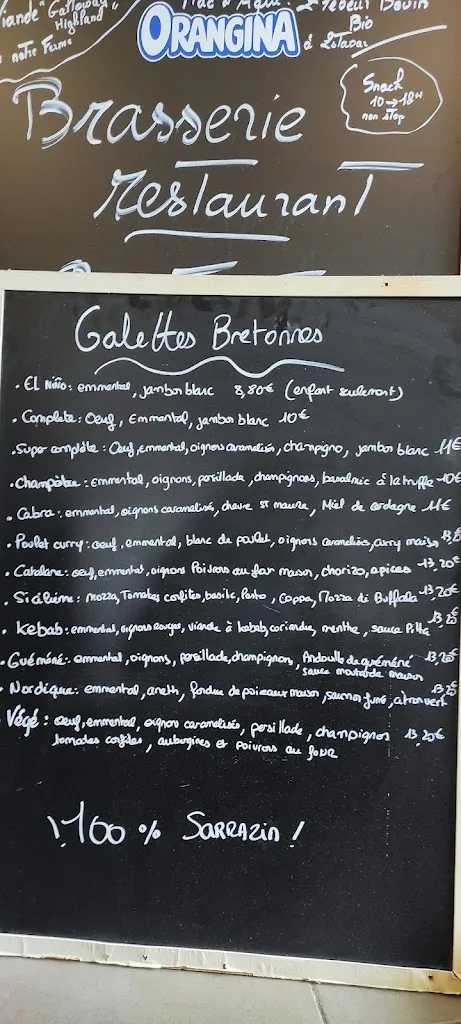 Viande "Galloway
Highland
notre Ferme
Bio
ORANGINA
à Estavar
Snack
10→18H
non stop
Brasserie
Restaurant
Galettes Bretonnes
• EL Niño: emmental, jambon blanc 8,80€ (enfant seulement)
• Complète: Oeuf, Emmental, jambon blanc 10€
• Super complète: Oeuf, emmental, oignons caramelisés, champigno, jambon blanc 11€
• Champêtre: emmental, oignons, persillade, champignons, basalmic à la truffe 10€
• Cabra: emmental, oignons caramelisés, chevre St maure, Miel de cerdagne 11€
• Poulet curry: oeuf, emmental, blanc de poulet, oignons caramelisés, curry maison
• Catalane: oeuf, emmental, oignons Poivrons au four maison, chorizo, epices 13,20€
• Sicilienne: mozza, Tomates confites, basilic, Pesto, Coppa, Mozza di Buffala 13,20€
• Kebab: emmental, oignons rouges, viande à kebab, coriandre, menthe, sauce Pitta 13,20€
• Guéméné: emmental, oignons, persillade, champignon, Andouille de guéméné 13,20€
sauce moutarde maison
• Nordique: emmental, aneth, fondue de poireaux maison, saumon fumé, citron vert 13,20€
• Végé: oeuf, emmental, oignons caramelisés, persillade, champignos 13,20€
tomades confites, aubergines et poivrons au four
! 100 % SARRAZIN !